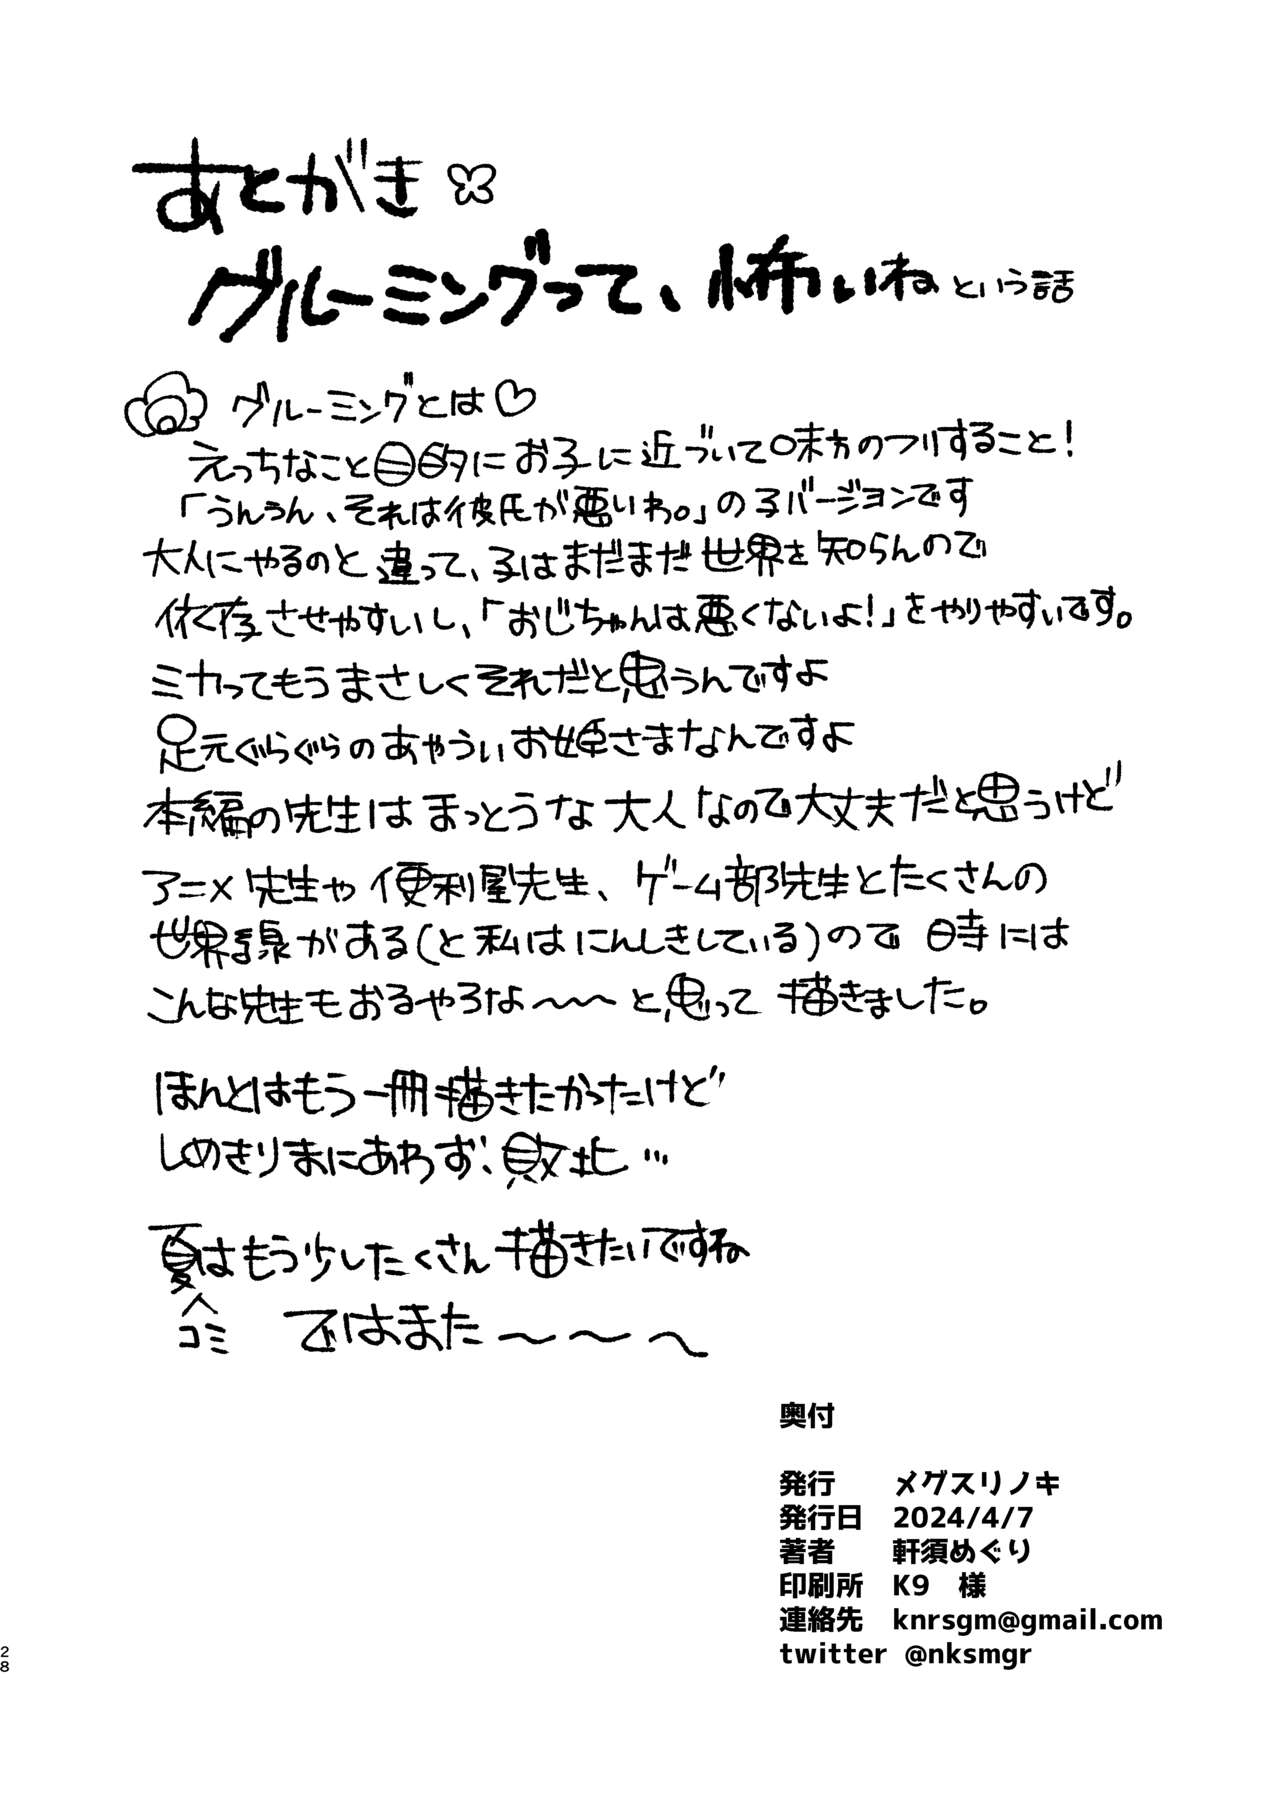 あとがき
グルーミングって、怖いね という話
グルーミングとは♡
えっちなこと目的にお子に近づいて味方のフリすること！
「うんうん、それは彼氏が悪いわ。」の子バージョンです
大人にやるのと違って、子はまだまだ世界を知らんので
依存させやすいし、「おじちゃんは悪くないよ！」をやりやすいです。
ミカってもうまさしくそれだと思うんですよ
足元ぐらぐらのあやういお姫さまなんですよ
本編の先生はまっとうな大人なので大丈夫だと思うけど
アニメ先生や便利屋先生、ゲーム部先生とたくさんの
世界線がある(と私はにんしきしている)ので時には
こんな先生もおるやろな〜〜と思って描きました。
ほんとはもう一冊描きたかったけど
しめきりまにあわず、敗北…
夏はもう少したくさん描きたいですね
コミ
ではまた〜〜〜
奥付
発行 メグスリノキ
発行日 2024/4/7
著者 軒須めぐり
印刷所 K9 様
連絡先 knrsgm@gmail.com
twitter @nksmgr
28